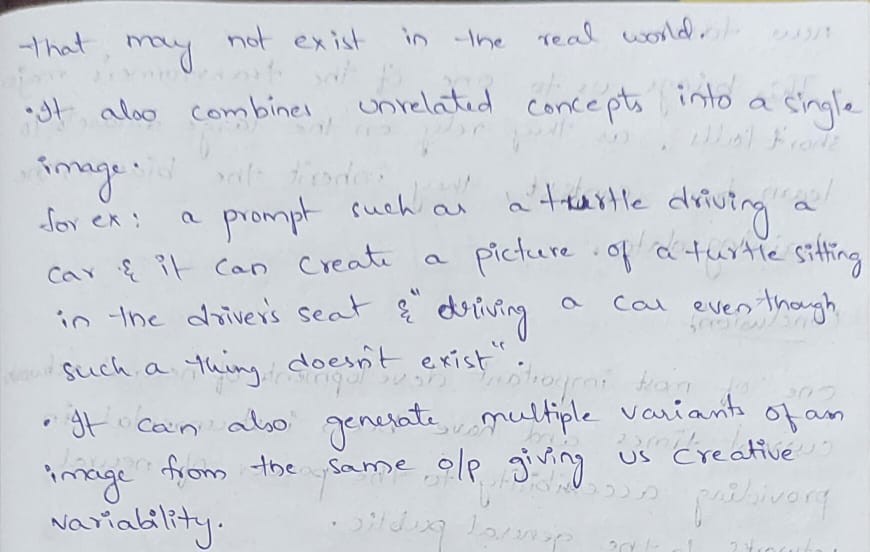 that may not exist in the real world.
• It also combines unrelated concepts into a single
image.
for ex: a prompt such as a turtle driving a
car & it can create a picture of a turtle sitting
in the driver's seat & "driving a car even though
such a thing doesn't exist".
• It can also generate multiple variants of an
image from the same o/p giving us creative
variability.